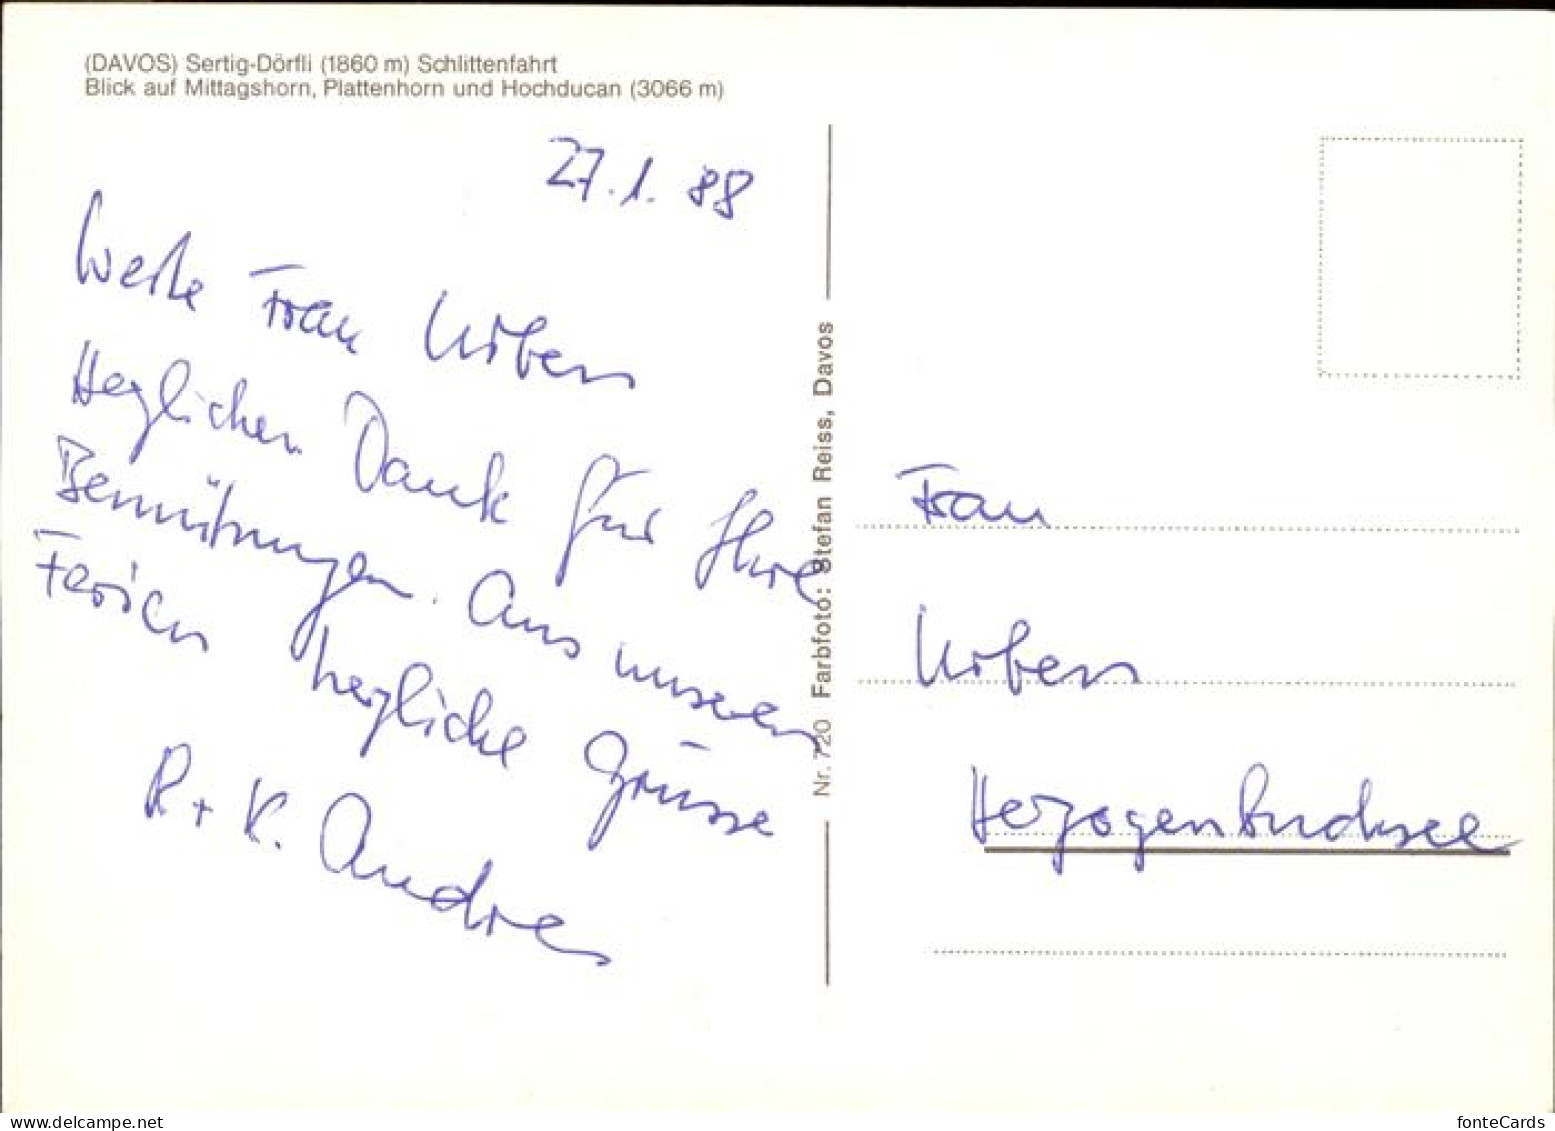 (DAVOS) Sertig-Dörfli (1860 m) Schlittenfahrt
Blick auf Mittagshorn, Plattenhorn und Hochducan (3066 m)
27.1.88
Werte Frau
Herzlichen Dank für Ihre
Bemühungen. Aus unseren
Ferien herzliche Grüsse
R + K. Andres
Nr. 720 Farbfoto: Stefan Reiss, Davos
Frau
Herzogenbuchsee
fonteCards